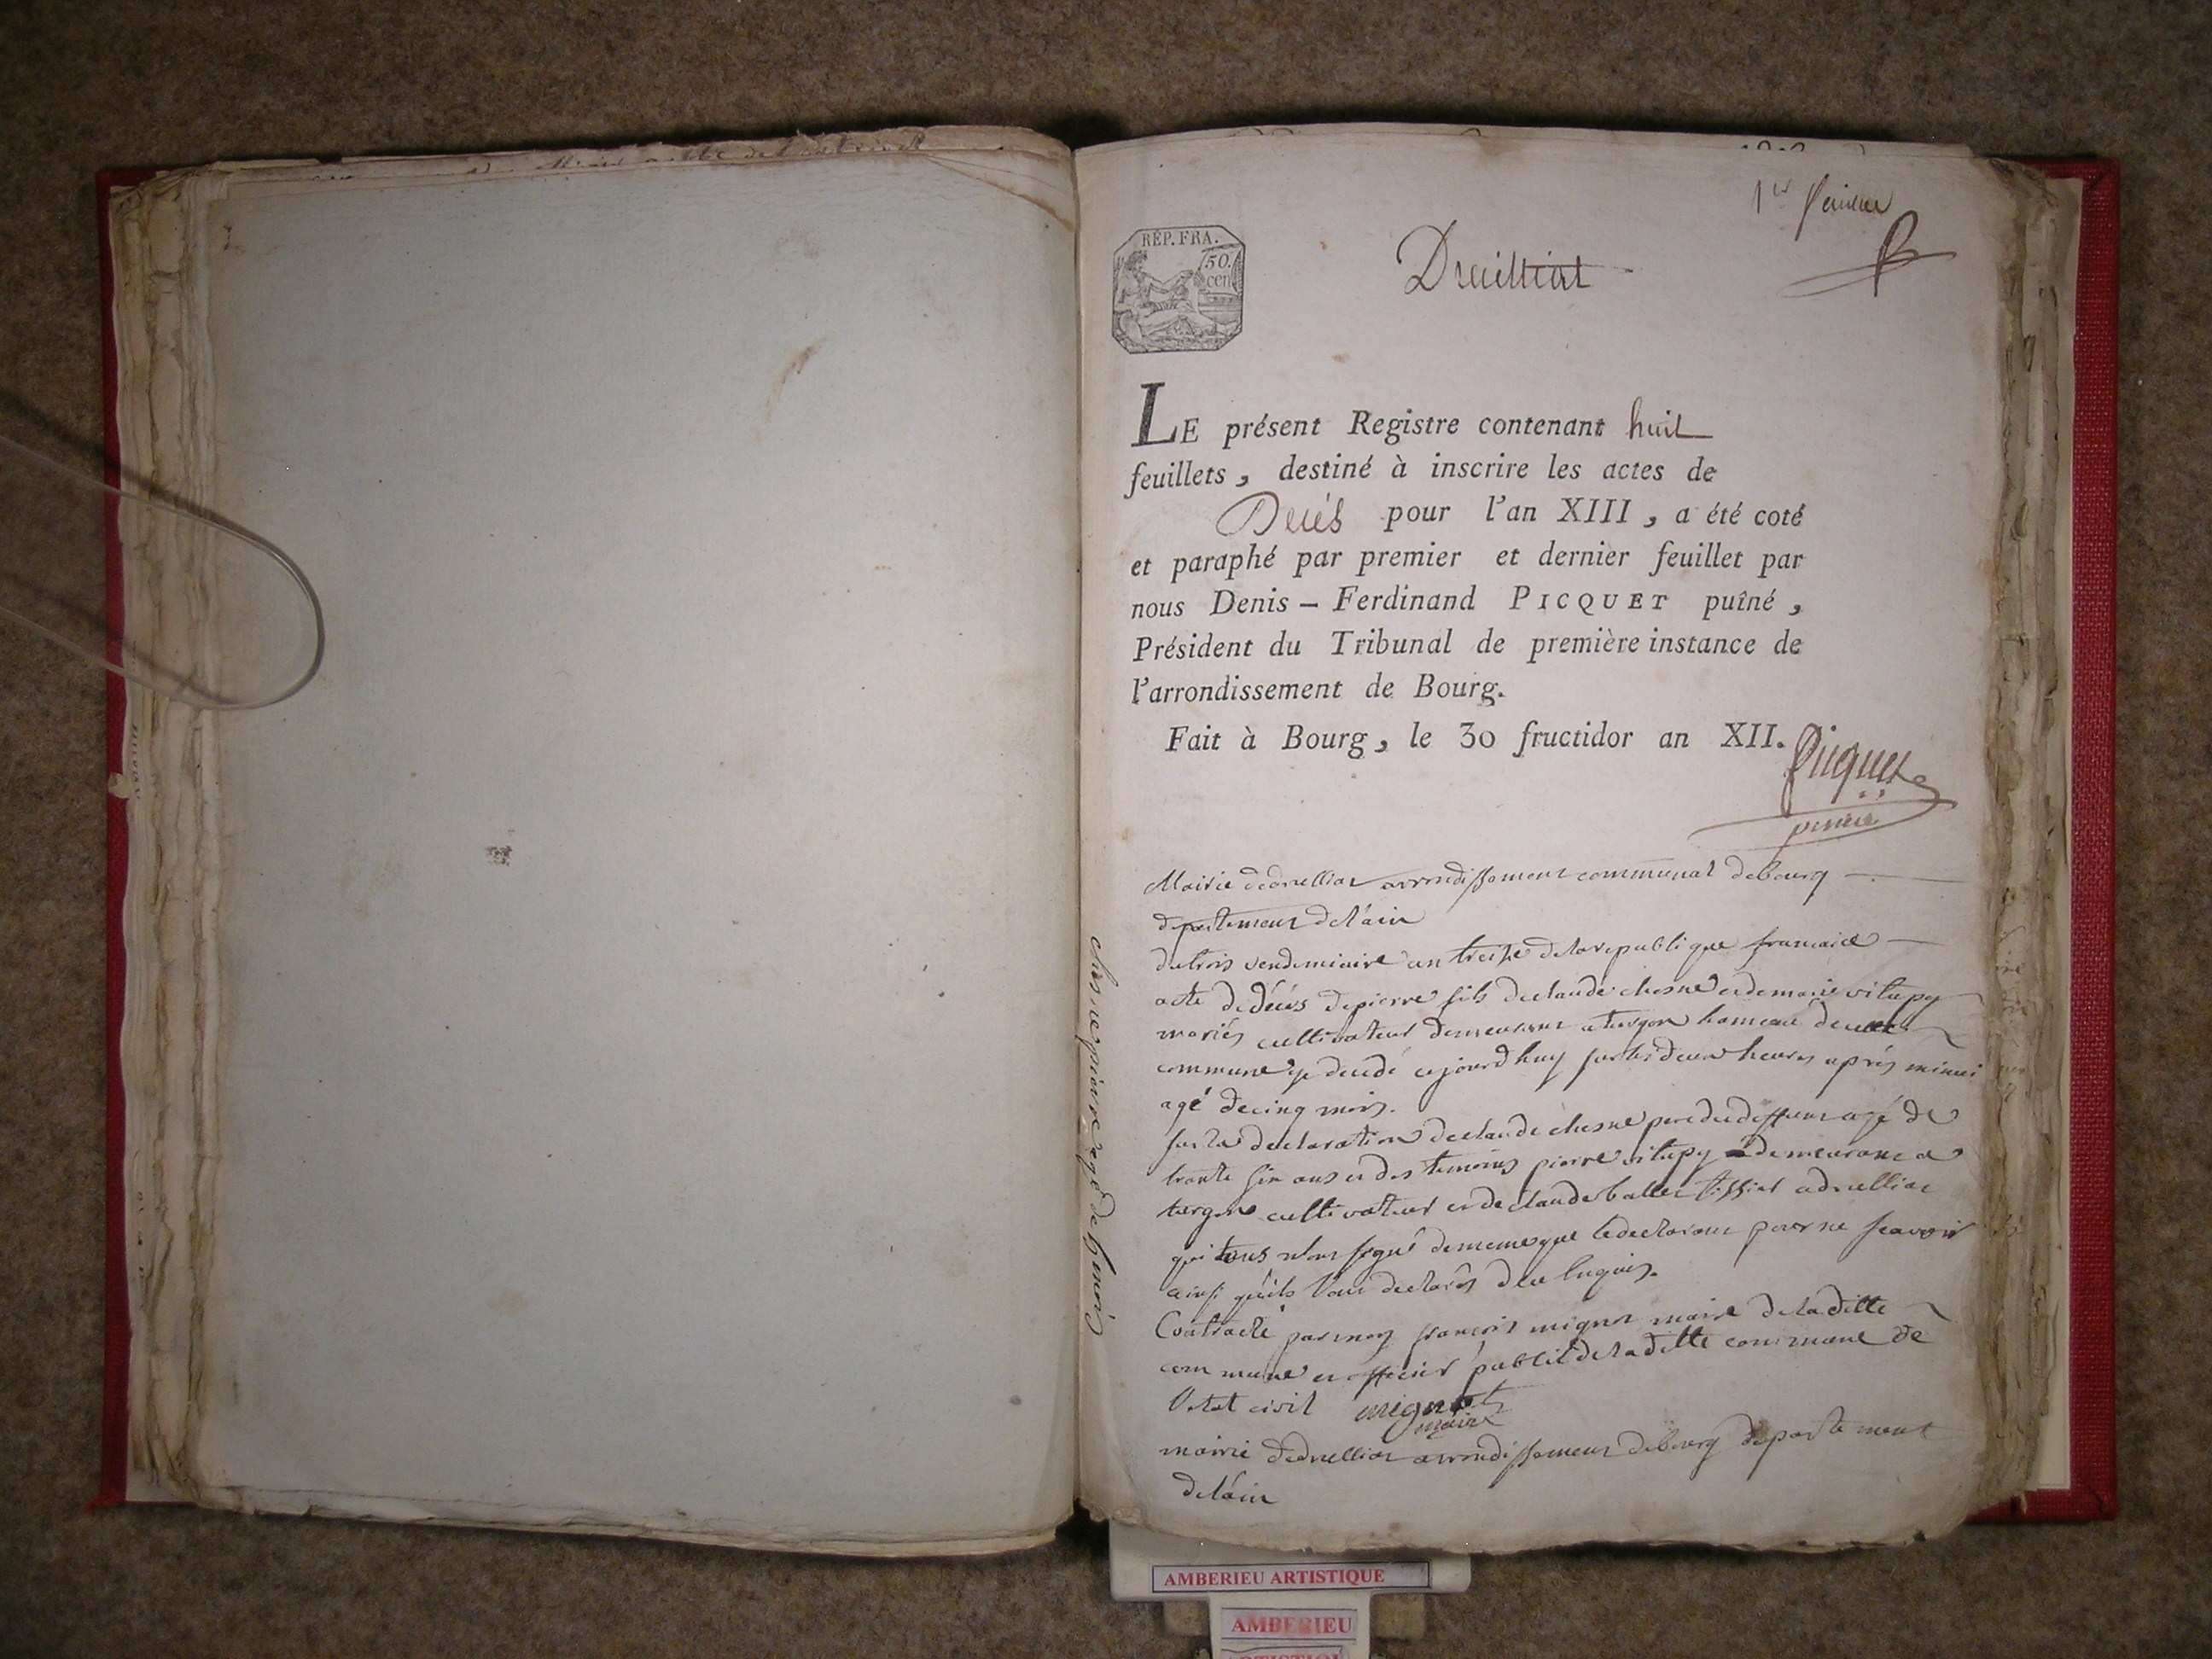 1er feuillet
RÉP. FRA.
50.
cen
Druilliat
LE présent Registre contenant huit
feuillets, destiné à inscrire les actes de
Decés pour l'an XIII, a été coté
et paraphé par premier et dernier feuillet par
nous Denis – Ferdinand PICQUET puîné,
Président du Tribunal de première instance de
l'arrondissement de Bourg.
Fait à Bourg, le 30 fructidor an XII.
Picquet
puiné
Mairie de druelliat arrondissement communal de bourg
departement de l'ain
du trois vendemiaire an treize de la republique francaice
acte de décés de pierre fils de claude chesne et de marie vitupy
mariés cultivateur demeurant a turgon hameau de
commune decedé ce jourd huy sur les deux heures aprés minui
agé de cinq mois.
sur la declaration de claude chesne pere du deffunt agé de
trante six ans et des temoins pierre vitupy demeurant a
turgon cultivateur et de claude ballet tissier a druelliat
qui tous n'ont signé de meme que le declarant pour ne scavoir
ainsi qu'ils l'ont declarés de ce enquis.
Contracté par moy francois mignot maire de la ditte
commune et officier public de la ditte commune de
l'etat civil mignot
maire
mairie de druelliat arrondissement de bourg departement
de l'ain
chesne pierre agé de 5 mois
AMBERIEU ARTISTIQUE
AMBERIEU
ARTISTIQUE